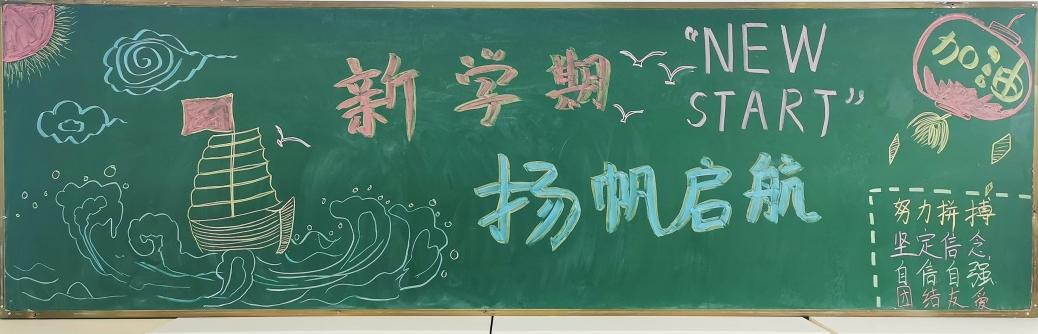 新学期
"NEW
START"
扬帆启航
加油
努力拼搏
坚定信念
自信自强
团结友爱